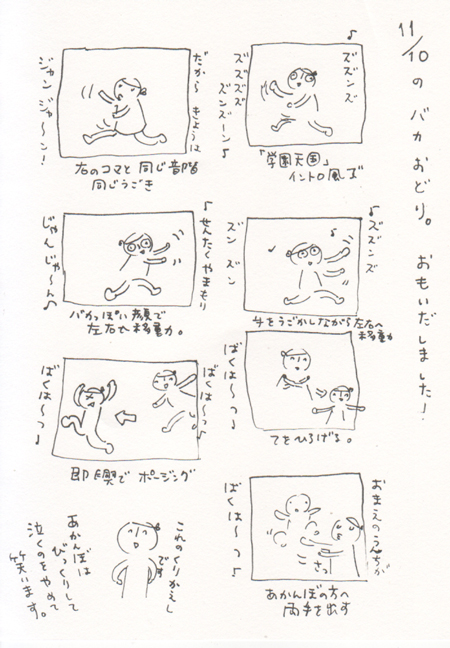 11/10のバカおどり。おもいだしました!
♪ズズンズ
ズズズズ
ズンズーン♪
「学園天国」
イントロ風で
だから きょうは
ジャンジャ〜ン!
右のコマと同じ音階
同じうごき
♪ズズンズ
ズンズン
手をうごかしながら左右へ
移動
♪せんたくやまもり
じゃんじゃ〜ん♪
バカっぽい顔で
左右へ移動。
ばくは〜つ♪
てをひろげる。
ばくは〜つ♪
ばくは〜つ♪
即興でポージング
おまえのうんちが
さっ
ばくは〜つ♪
あかんぼの方へ
両手を出す
これのくりかえし
です
あかんぼは
びっくりして
泣くのをやめて
笑います。